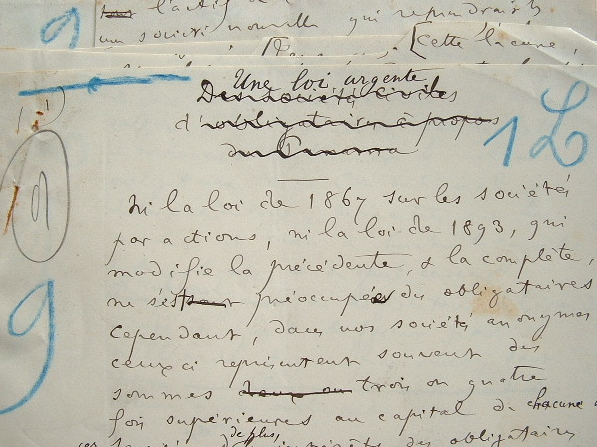 l'actif de
une société nouvelle qui reprendrait
[Cette lacune,
Une loi urgente
Des sociétés civiles
d'obligataires à propos
du Panama
1
9
9
Ni la loi de 1867 sur les sociétés
par actions, ni la loi de 1893, qui
modifie la précédente, & la complète,
ne s'est préoccupée des obligataires
Cependant, dans nos sociétés anonymes
ceux ci représentent souvent des
sommes deux ou trois ou quatre
fois supérieures au capital de chacune
de plus,
des obligataires